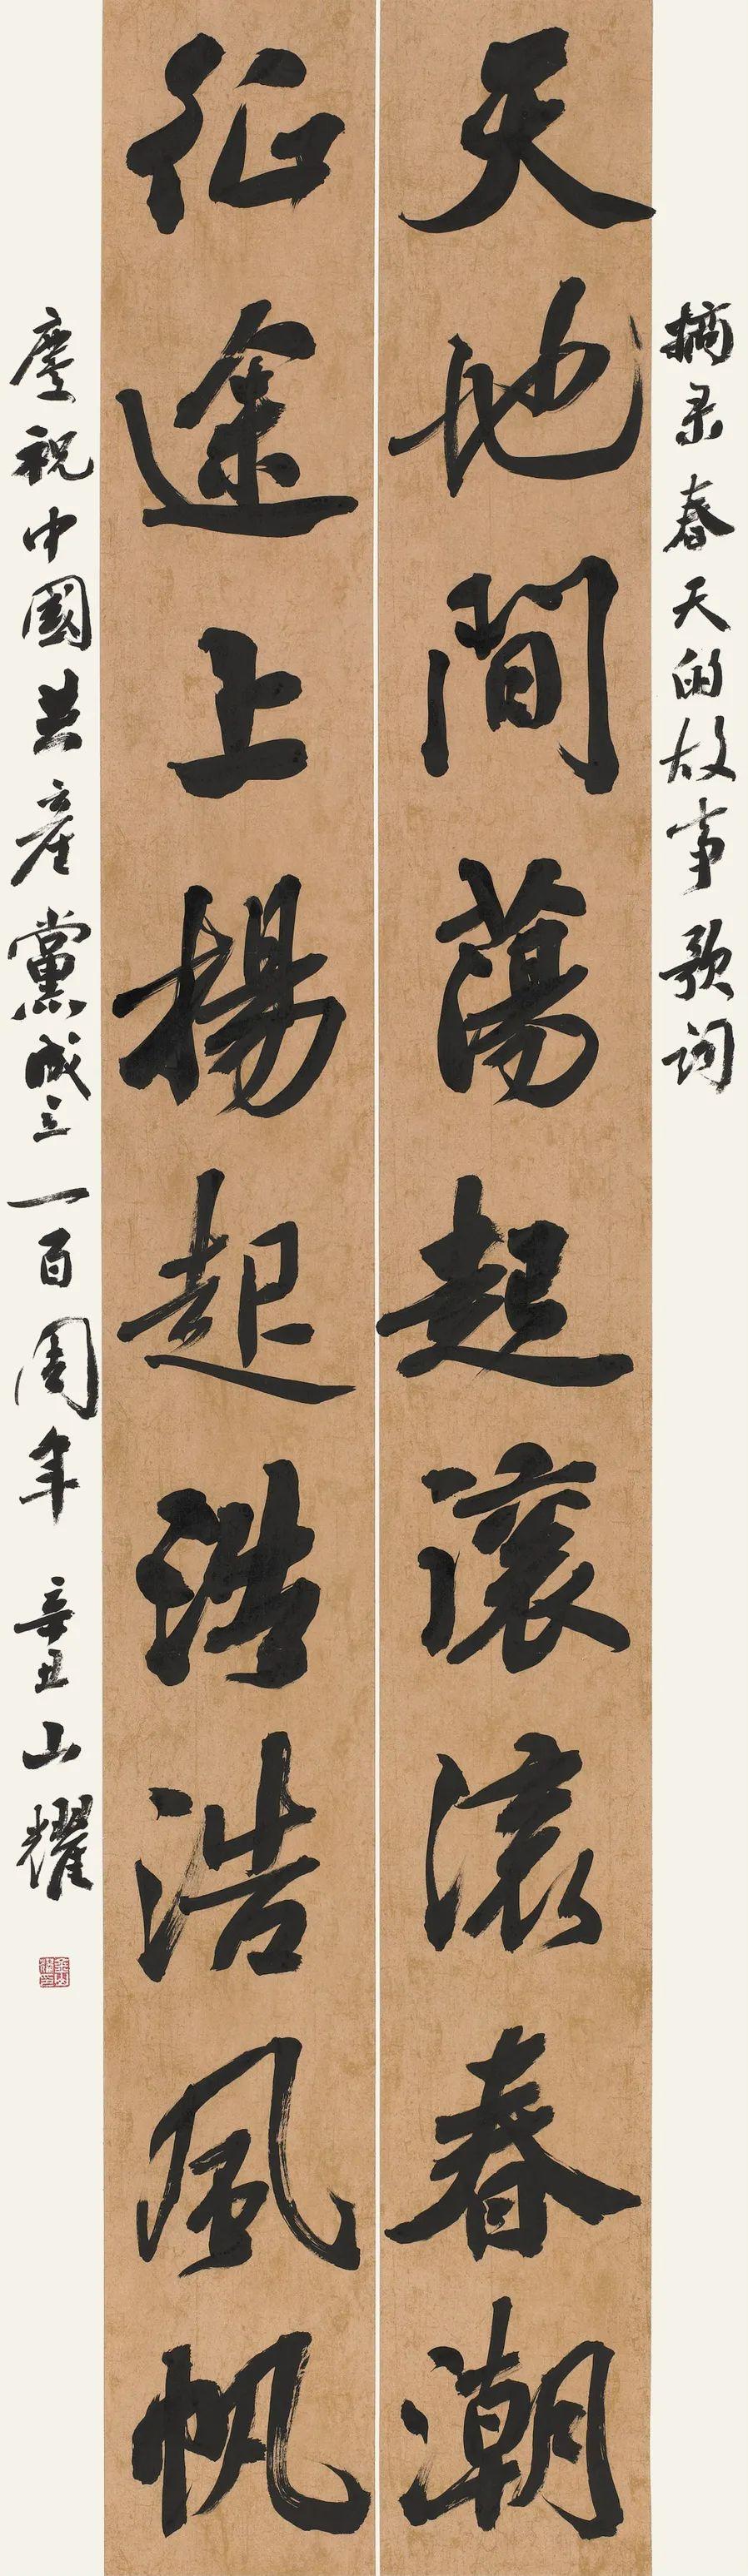 摘录春天的故事歌词
天地間蕩起滚滚春潮
征途上揚起浩浩風帆
慶祝中國共產黨成立一百周年 辛丑 山耀